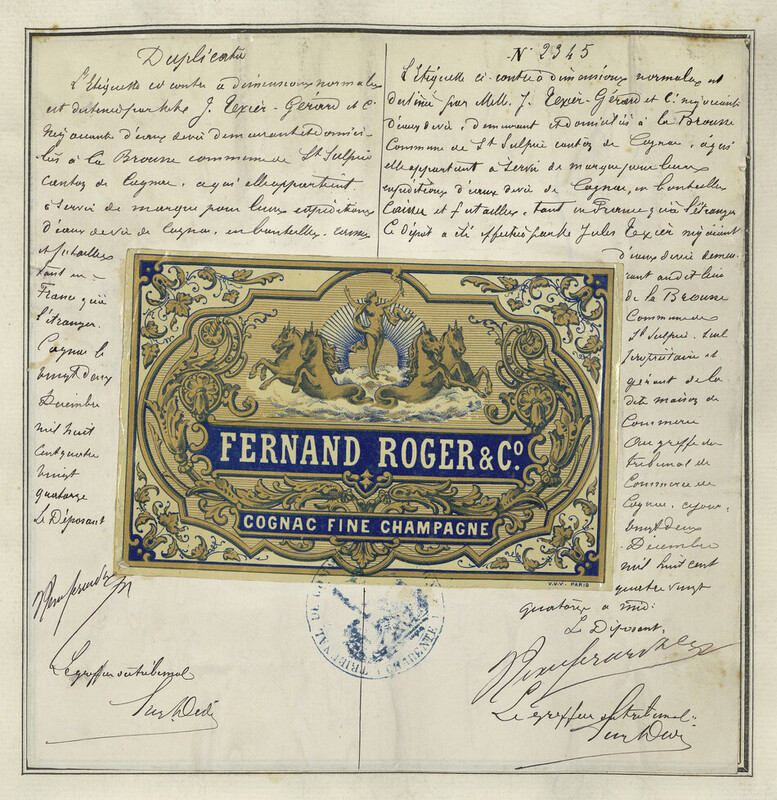 Duplicata
L'Etiquette ci contre a dimensions normales
est destinée par M. J. Texier-Gérard et Cie
négociants d'eaux de vie demeurant et domici-
liés à la Brousse commune de St Sulpice
canton de Cognac, a qui elle appartient
à servir de marque pour leurs expéditions
d'eaux de vie de Cognac, en bouteilles, caisses
et futailles
tant en
France qu'à
l'étranger.
Cognac le
vingt deux
Décembre
mil huit
cent quatre
vingt
quatorze
Le Déposant
Le greffier du tribunal
N° 2345
L'Etiquette ci-contre a dimensions normales est
destinée par J. Texier-Gérard et Cie négociants
d'eaux de vie, demeurant et domiciliés à la Brousse
Commune de St Sulpice canton de Cognac, à qui
elle appartient a servir de marque pour leurs
expéditions d'eaux de vie de Cognac, en bouteilles
caisses et futailles, tant en France qu'à l'étranger
Ce dépôt a été effectué par Jules Texier négociant
d'eaux de vie demeu-
rant audit lieu
de la Brousse
Commune de
St Sulpice, seul
propriétaire et
gérant de la
dite maison de
Commerce
Au greffe du
tribunal de
Commerce de
Cognac, ce jour
vingt deux
Décembre
mil huit cent
quatre vingt
quatorze a midi
Le Déposant,
Le greffier du tribunal
FERNAND ROGER & Co.
COGNAC FINE CHAMPAGNE
V.V.V. PARIS
TRIBUNAL DE CHARENTE